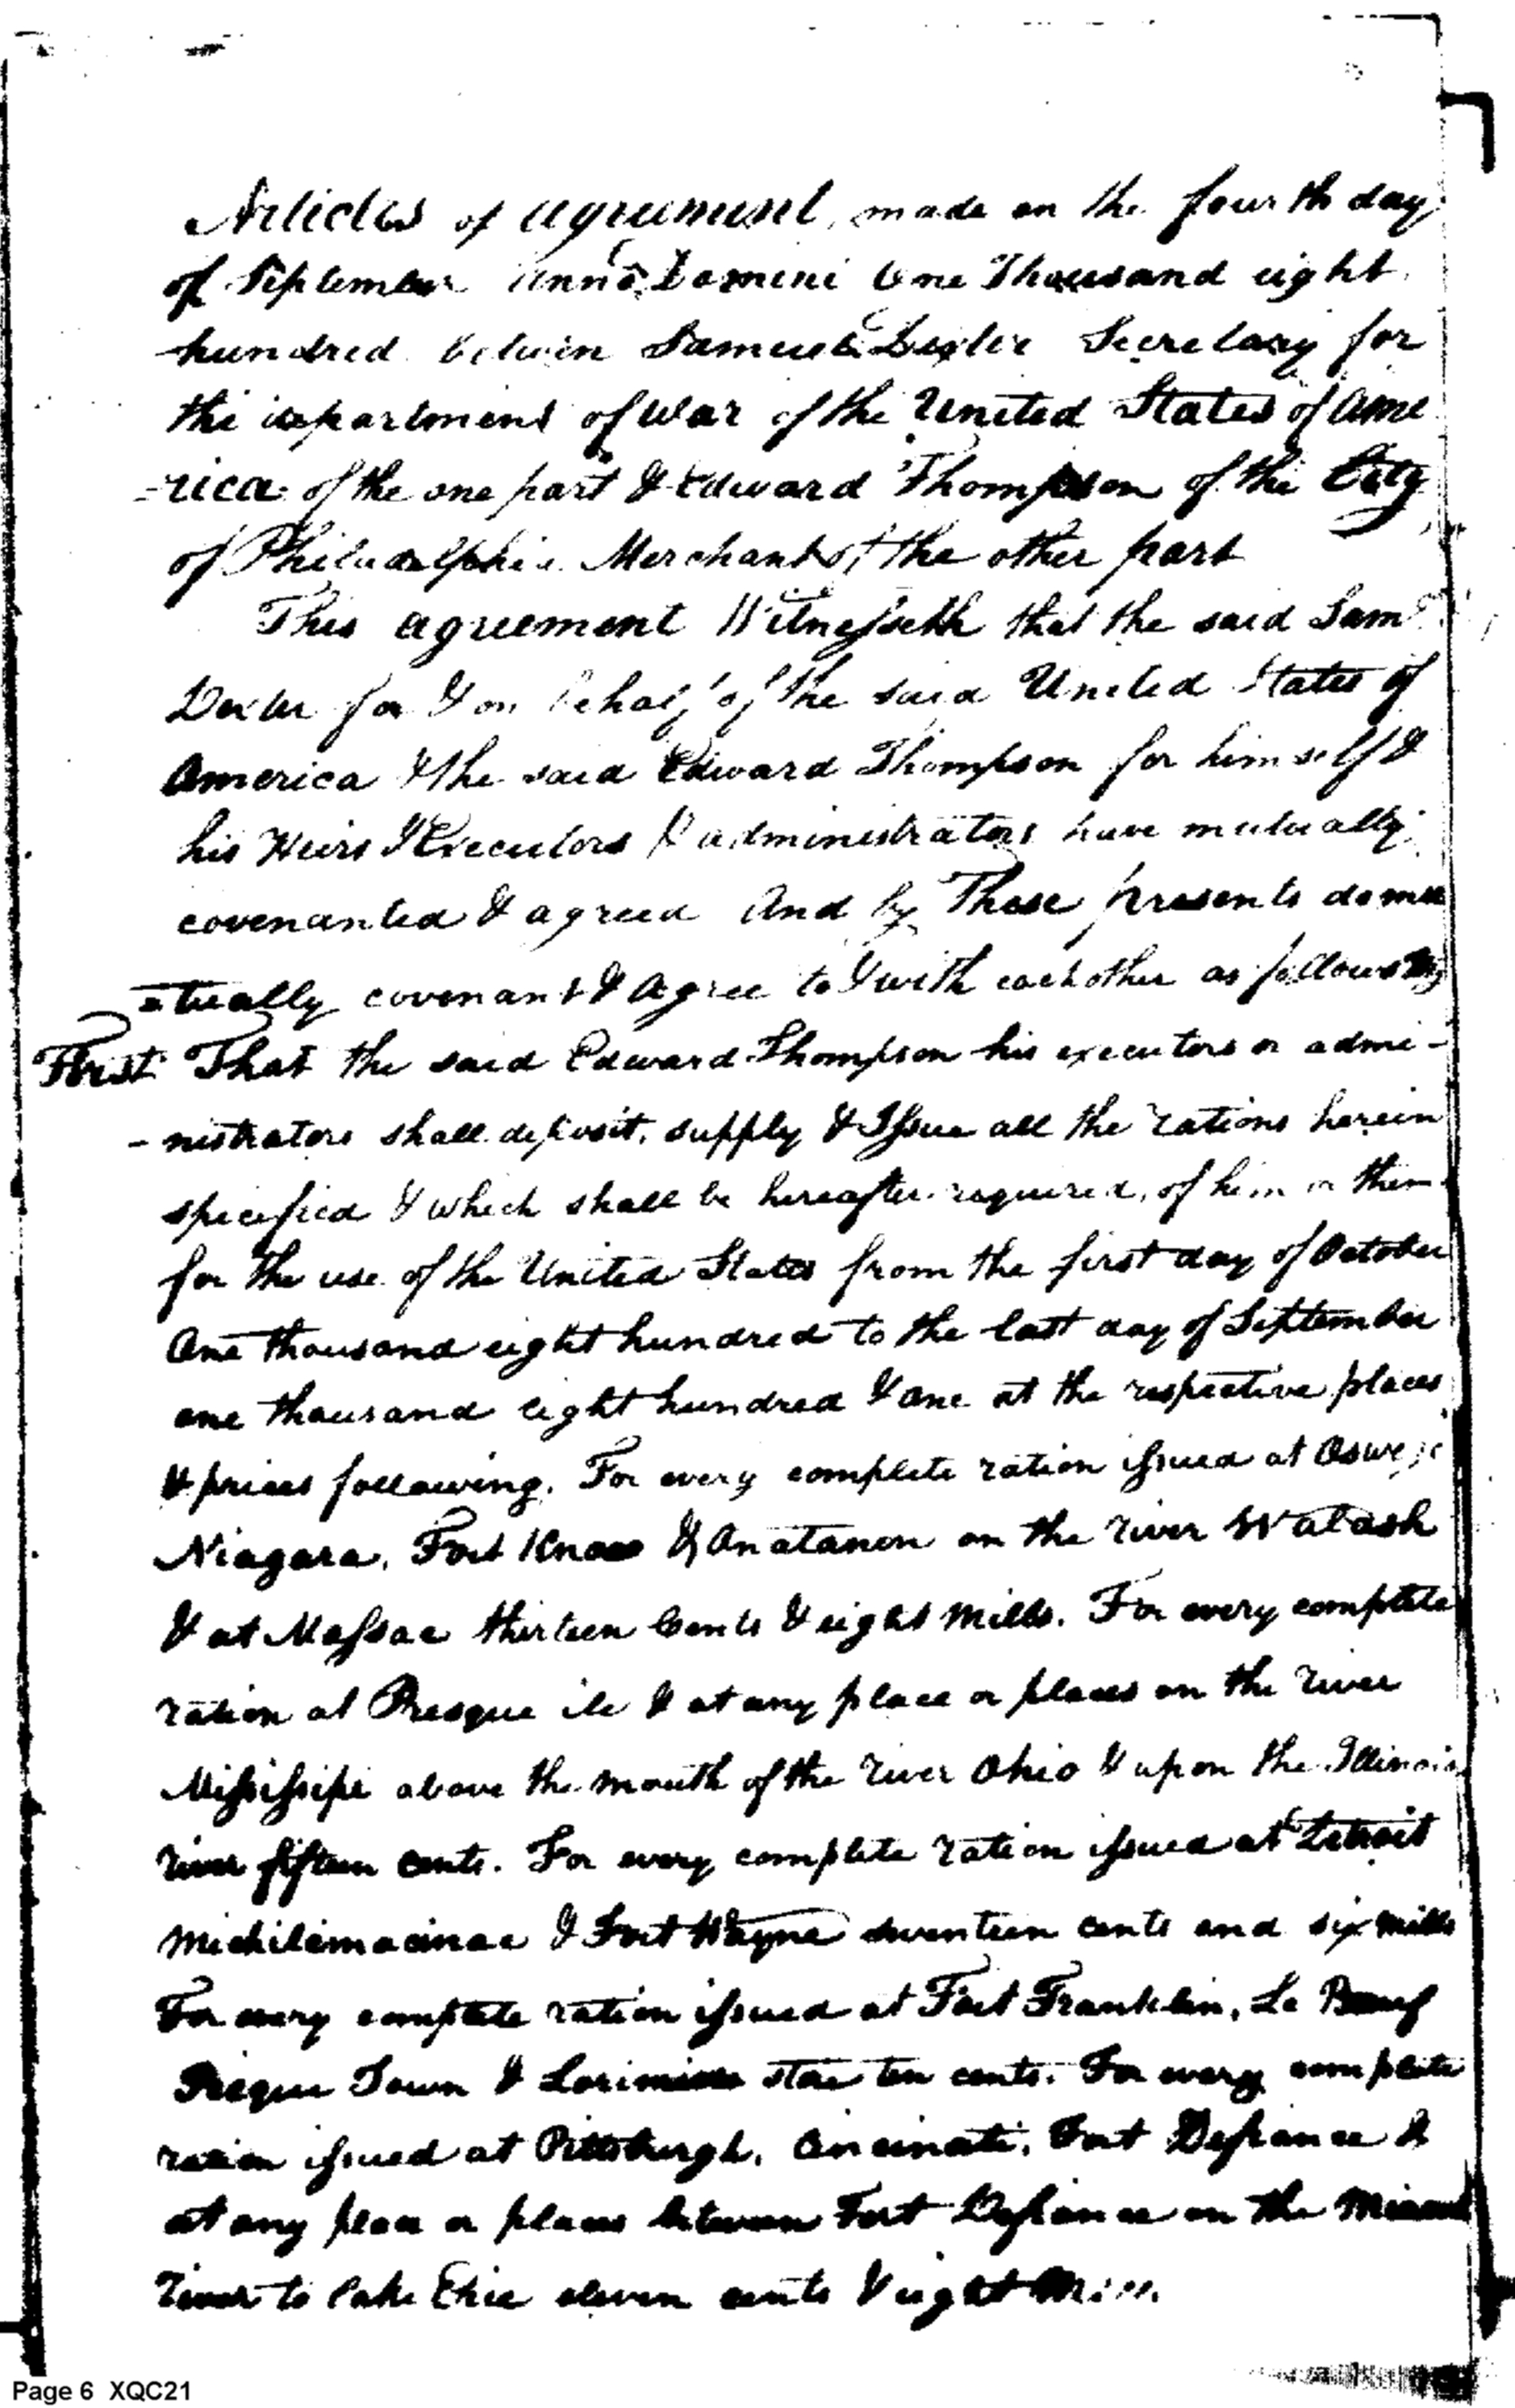 Articles of agreement, made on the fourth day
of September Anno Domini One Thousand eight
hundred between Samuel Dexter Secretary for
the department of War of the United States of Ame
-rica of the one part & Edward Thompson of the City
of Philadelphia Merchant of the other part
This agreement Witnesseth that the said Saml
Dexter for & on behalf of the said United States of
America & the said Edward Thompson for himself &
his Heirs Executors & administrators have mutually
covenanted & agreed And by These presents do mu
-tually covenant & agree to & with each other as follows
First That the said Edward Thompson his executors or admi-
-nistrators shall deposit, supply & Issue all the rations herein
specified & which shall be hereafter required, of him or them
for the use of the United States from the first day of October
One thousand eight hundred to the last day of September
one thousand eight hundred & one at the respective places
& prices following. For every complete ration issued at Oswego
Niagara, Fort Knox & Anatanon on the river Wabash
& at Massac thirteen Cents & eight Mills. For every complete
ration at Presque ile & at any place or places on the river
Mississipi above the mouth of the river Ohio & upon the Illinois
river fifteen cents. For every complete ration issued at Detroit
Michilimacinac & Fort Wayne seventeen cents and six mills
For every complete ration issued at Fort Franklin, Le Beuf
Pieque Town & Lorimies store ten cents. For every complete
ration issued at Pittsburgh, Cincinati, Fort Defiance &
at any place or places between Fort Defiance on the Miami
River to Lake Erie eleven cents & eight Mills
Page 6 XQC21